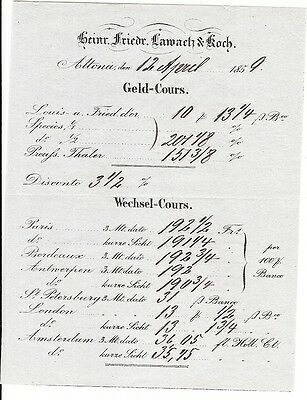 Heinr. Friedr. Lawaetz & Koch.
Altona, den 12 April 1859
Geld-Cours.
Louis- u. Fried.dor 10 ₰ 13 1/4 β Bco
Species, 1/1 %
do 1/2 201 1/8 %
Preuss. Thaler 151 3/8 %
Disconto 3 1/2 %
Wechsel-Cours.
Paris 3. Mt. dato 192 1/2 Frs.
do kurze Sicht 191 1/4
Bordeaux 3. Mt. dato 192 3/4
Antwerpen 3. Mt. dato 192
do kurze Sicht 190 3/4
per 100 ₰ Banco
St. Petersburg 3. Mt. dato 31 β Banco
London 3. Mt. dato 13 1/2 β Bco
do kurze Sicht 13 1 3/4
Amsterdam 3. Mt. dato 36,05 fl. Holl. Ct.
do kurze Sicht 35,75